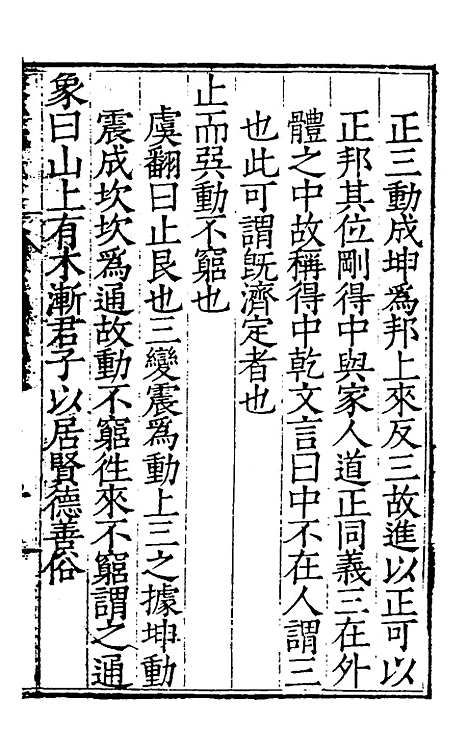 正三動成坤爲邦上來反三故進以正可以
正邦其位剛得中與家人道正同義三在外
體之中故稱得中乾文言曰中不在人謂三
也此可謂旣濟定者也
止而巽動不窮也
虞翻曰止艮也三變震爲動上三之據坤動
震成坎坎爲通故動不窮徃來不窮謂之通
象曰山上有木漸君子以居賢德善俗